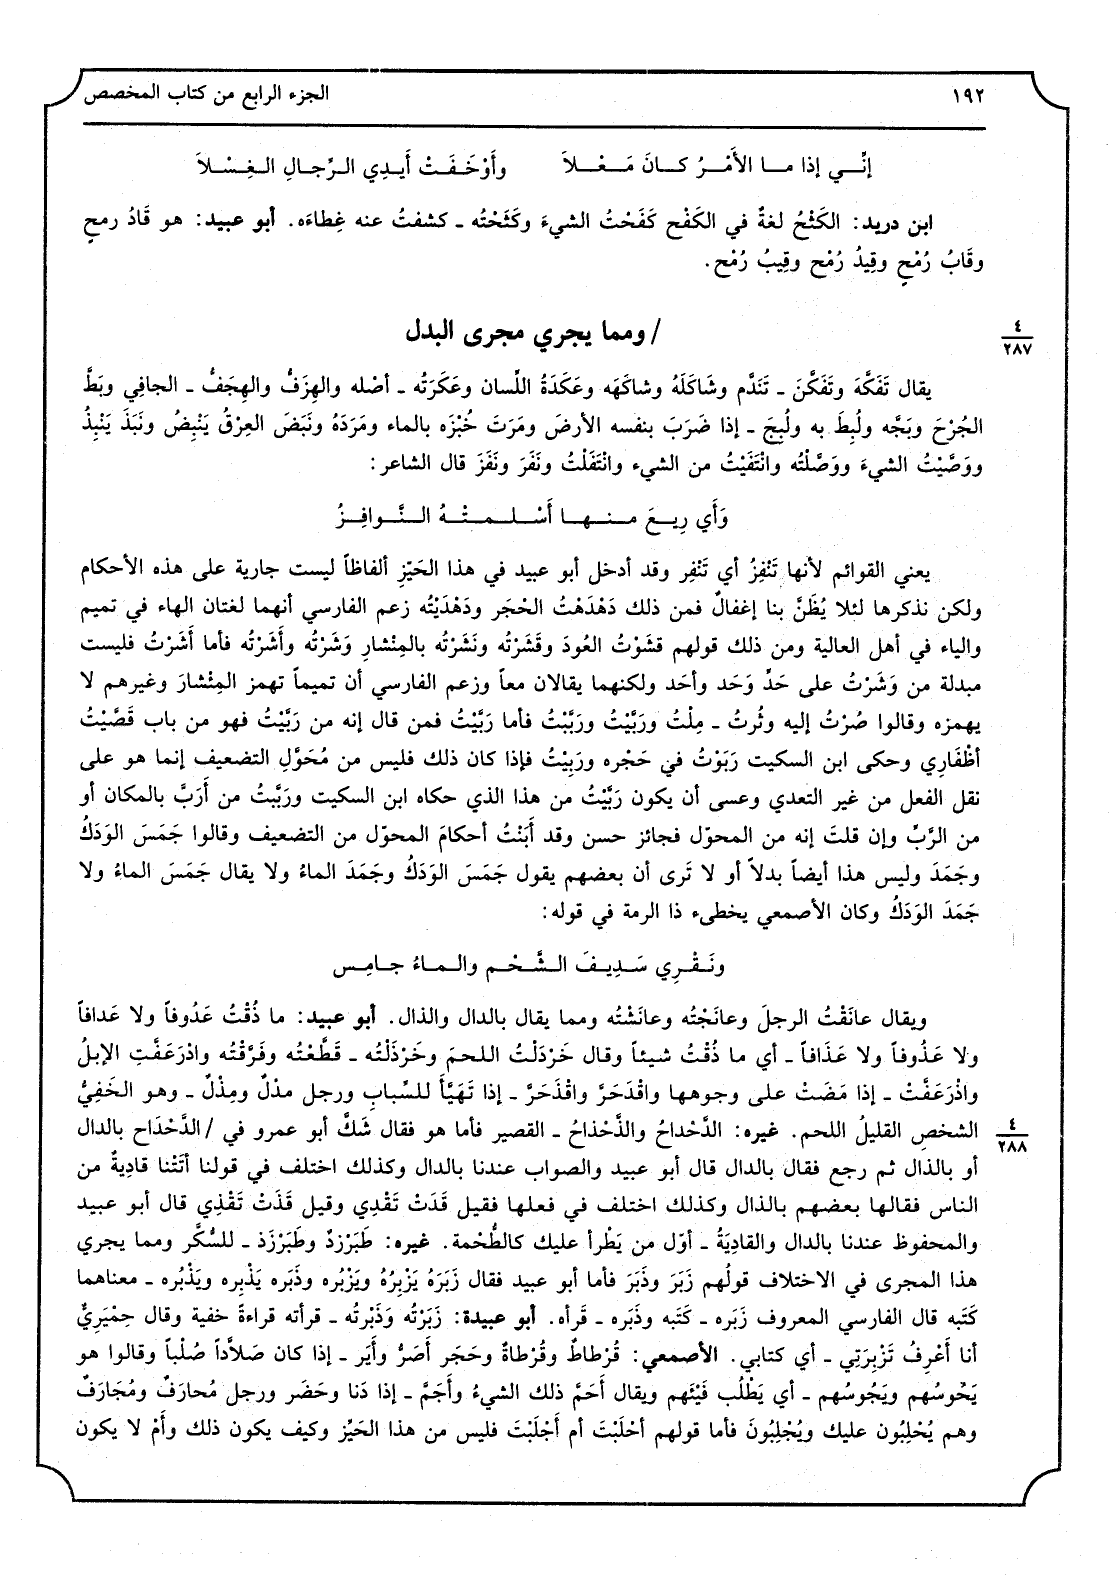 ١٩٢ الجزء الرابع من كتاب المخصص
إنِّـي إذا مـا الأَمْـرُ كـانَ مَـعْـلاَ وأَوْخَـفَـتْ أَيـدِي الـرِّجـالِ الـغِـسْـلاَ
ابن دريد: الكَثْحُ لغةٌ في الكَفْح كَفَحْتُ الشيءَ وكَثَحْتُه ـ كشفتُ عنه غِطاءَه. أبو عبيد: هو قَادُ رمحٍ
وقَابُ رُمْحٍ وقِيدُ رُمْح وقِيبُ رُمْح.
٤
٢٨٧
/ ومما يجري مجرى البدل
يقال تَفَكَّهَ وتَفَكَّنَ ـ تَنَدَّم وشَاكَلَهُ وشاكَهَه وعَكَدَةُ اللِّسان وعَكَرَتُه ـ أصْله والهِزَفُّ والهِجَفُّ ـ الجافِي وبَطَّ
الجُرْحَ وبَجَّه ولُبِطَ به ولُبِجَ ـ إذا ضَرَبَ بنفسه الأرضَ ومَرَتَ خُبْزَه بالماء ومَرَدَهُ ونَبَضَ العِرْقُ يَنْبِضُ ونَبَذَ يَنْبِذُ
ووَصَّيْتُ الشيءَ ووَصَّلْتُه وانْتَفَيْتُ من الشيء وانْتَفَلْتُ ونَفَرَ ونَفَزَ قال الشاعر:
وَأَي رِيـعَ مـنـهـا أَسْـلـمـتْـهُ الـنَّـوافِـزُ
يعني القوائم لأنها تَنْفِزُ أي تَنْفِر وقد أدخل أبو عبيد في هذا الحَيّزِ ألفاظاً ليست جارية على هذه الأحكام
ولكن نذكرها لئلا يُظَنَّ بنا إغفالٌ فمن ذلك دَهْدَهْتُ الحْجَر ودَهْدَيْتُه زعم الفارسي أنهما لغتان الهاء في تميم
والياء في أهل العالية ومن ذلك قولهم قشَوْتُ العُودَ وقَشَرْتُه ونَشَرْتُه بالمِنْشارِ وَشَرْتُه وأَشَرْتُه فأما أَشَرْتُ فليست
مبدلة من وَشَرْتُ على حَدِّ وَحَد وأَحَد ولكنهما يقالان معاً وزعم الفارسي أن تميماً تهمز المِنْشارَ وغيرهم لا
يهمزه وقالوا صُرْتُ إليه وثُرتُ ـ مِلْتُ ورَبَّيْتُ ورَبَّبْتُ فأما رَبَّيْتُ فمن قال إنه من رَبَّبْتُ فهو من باب قَصَّيْتُ
أظْفَارِي وحكى ابن السكيت رَبَوْتُ في حَجْره ورَبِيْتُ فإذا كان ذلك فليس من مُحَوَّلِ التضعيف إنما هو على
نقل الفعل من غير التعدي وعسى أن يكون رَبَّيْتُ من هذا الذي حكاه ابن السكيت ورَبَّبتُ من أَرَبَّ بالمكان أو
من الرَّبِّ وإن قلتَ إنه من المحوّل فجائز حسن وقد أَبَنْتُ أحكامَ المحوّل من التضعيف وقالوا جَمَسَ الوَدَكُ
وجَمَدَ وليس هذا أيضاً بدلاً أو لا تَرى أن بعضهم يقول جَمَسَ الوَدَكُ وجَمَدَ الماءُ ولا يقال جَمَسَ الماءُ ولا
جَمَدَ الوَدَكُ وكان الأصمعي يخطىء ذا الرمة في قوله:
ونَـقْـرِي سَـدِيـفَ الـشَّـحْـم والـمـاءُ جـامِـس
ويقال عانَقْتُ الرجلَ وعانَجْتُه وعانَشْتُه ومما يقال بالدال والذال. أبو عبيد: ما ذُقْتُ عَدُوفاً ولا عَدافاً
ولا عَذُوفاً ولا عَذَافاً ـ أي ما ذُقْتُ شيئاً وقال خَرْدَلْتُ اللحمَ وخَرْذَلْتُه ـ قَطَّعْتُه وفَرَّقْتُه وادْرَعَفَّتِ الإبلُ
واذْرَعَفَّتْ ـ إذا مَضَتْ على وجوهها واقْدَحَرَّ واقْذَحَرَّ ـ إذا تَهَيَّأَ للسِّبابِ ورجل مدْلٌ ومِذْلٌ ـ وهو الخَفِيُّ
الشخصِ القليلُ اللحم. غيره: الدَّحْداحُ والذَّحْذاحُ ـ القصير فأما هو فقال شَكَّ أبو عمرو في /الدَّحْدَاح بالدال
٤
٢٨٨
أو بالذال ثم رجع فقال بالدال قال أبو عبيد والصواب عندنا بالدال وكذلك اختلف في قولنا أتَتْنا قادِيةٌ من
الناس فقالها بعضهم بالذال وكذلك اختلف في فعلها فقيل قَدَتْ تَقْدِي وقيل قَذَتْ تَقْذِي قال أبو عبيد
والمحفوظ عندنا بالدال والقادِيَةُ ـ أوّل من يَطْرأ عليك كالطُّحْمة. غيره: طَبَرْزدٌ وطَبَرْزَذ ـ للسُّكَّر ومما يجري
هذا المجرى في الاختلاف قولُهم زَبَرَ وذَبَرَ فأما أبو عبيد فقال زَبَرَهُ يَزْبِرُهُ ويَزْبُره وذَبَره يَذْبِره ويَذْبُره ـ معناهما
كَتَبه قال الفارسي المعروف زَبَره ـ كَتَبه وذَبَره ـ قَرأه. أبو عبيدة: زَبَرْتُه وَذَبْرتُه ـ قرأته قراءةً خفية وقال حِمْيَرِيٌّ
أنا أَعْرِفُ تَزْبِرَتِي ـ أي كتابي. الأصمعي: قُرْطاطٌ وقُرْطاةٌ وحَجَر أَصَرُّ وأيَر ـ إذا كان صَلاَّداً صُلْباً وقالوا هو
يَحُوسُهم ويَجُوسُهم ـ أي يَطْلُب فَيْئَهم ويقال أَحَمَّ ذلك الشيءُ وأَجَمَّ ـ إذا دَنا وحَضَر ورجل مُحارَفٌ ومُجَارَفٌ
وهم يُحْلِبُون عليك ويُجْلِبُونَ فأما قولهم أحْلَبْتَ أم أَجْلَبْتَ فليس من هذا الحَيِّز وكيف يكون ذلك وأَمْ لا يكون